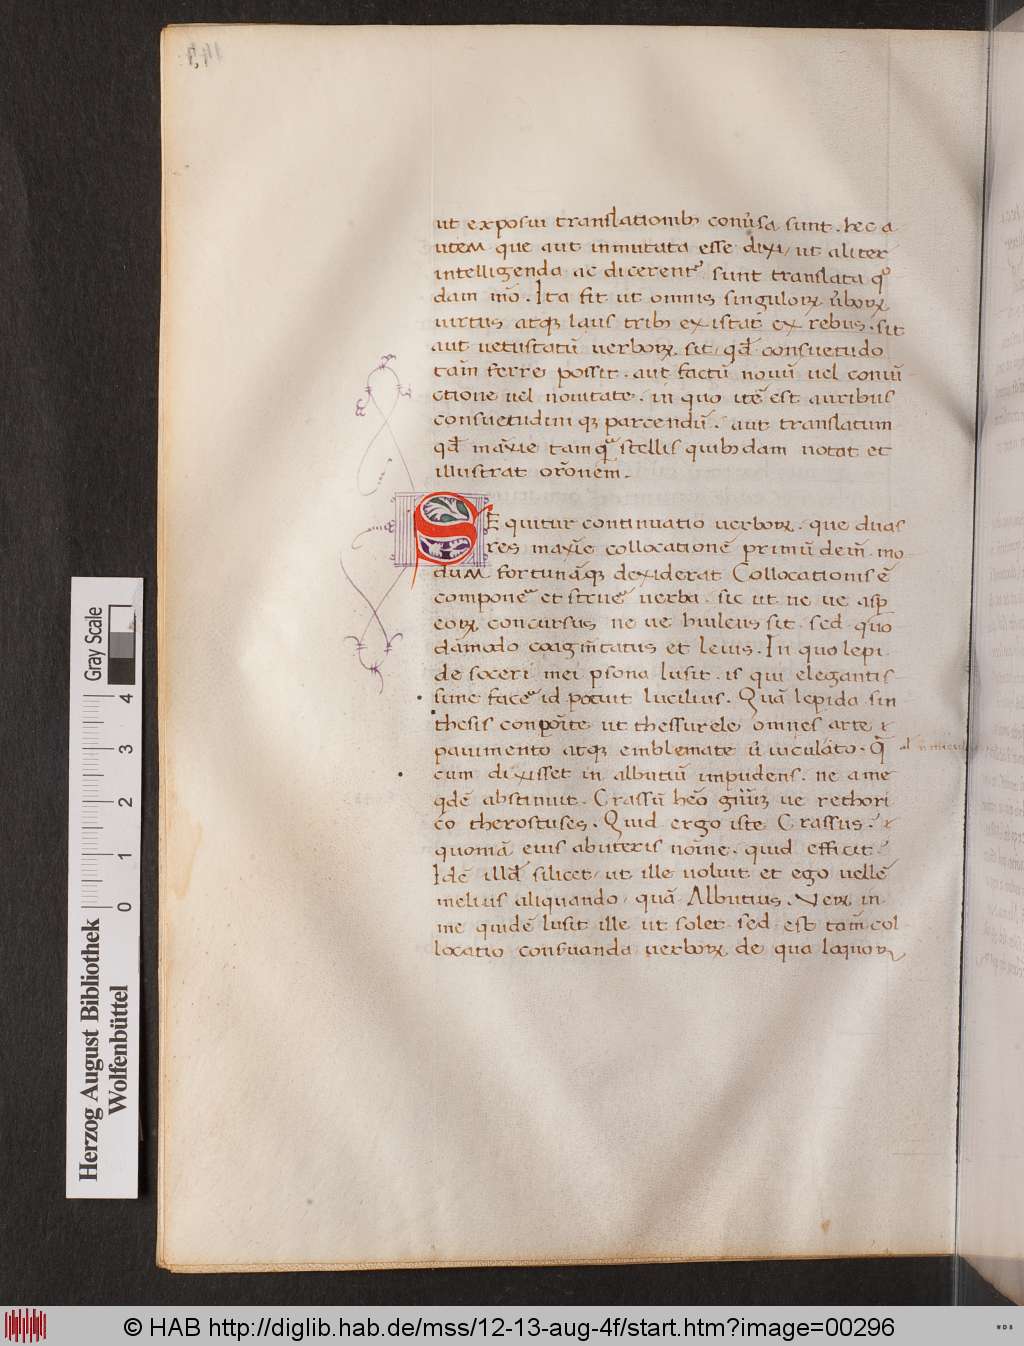 ut exposui translationib; conu̓sa sunt. hec a
utem que aut inmutata esse dixi / ut aliter
intelligenda ac dicerent᷑ sunt translata qͦ
dam mō. Ita fit ut omnis singuloꝝ u̓boꝝ
uirtus atqꝫ laus trib; existat ex rebus. sit
aut uetustatū uerboꝝ sit / qđ consuetudo
tām ferre possit. aut factū nouū uel coniū
ctione uel nouitate. in quo itē est auribus
consuetudini qꝫ parcendū. aut translatum
qđ māxie tamqͣ stellis quib; dam notat et
illustrat orōnem.
SEquitur continuatio uerboꝝ. que duas
res maxīe collocationē primū deīn mo-
dum formāqꝫ desiderat Collocationis ē
componeʳ et strueʳ uerba. sic ut ne ue asp
eoꝝ concursus ne ue hiulcus sit. sed quo
dāmodo coagm̄tatus et leuis. In quo lepi
de soceri mei psona lusit. is qui elegantis
sime faceʳ id potuit lucilius. Quā lepida sin
thesis conpōite ut thessurele omnes arte
pauimento atqꝫ emblemate ū iuculāto. q̄
cum dixisset in albutiū impudens. ne a me
qdē abstinuit. Crassū heō ue rethori
co therostuses. Quid ergo iste Crassus.
quomā eius abuteris noīne. quid efficit.
Idē illđ silicet / ut ille uoluit et ego uellē
melius aliquando / quā Albutius. Veꝝ in
me quidē lusit ille ut solet sed est tam̄ col
locatio conseruanda uerboꝝ de qua loquoꝝ
Gray Scale
4
3
2
1
0
Herzog August Bibliothek
Wolfenbüttel
© HAB http://diglib.hab.de/mss/12-13-aug-4f/start.htm?image=00296